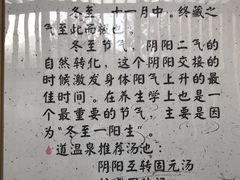 冬至，十一月中，终藏之
气至此而极也。
冬至节气，阴阳二气的
自然转化，这个阴阳交接的
时候激发身体阳气上升的最
佳时间。在养生学上也是一
个最重要的节气，主要是因
为“冬至一阳生”。
道温泉推荐汤池：
阴阳互转固元汤